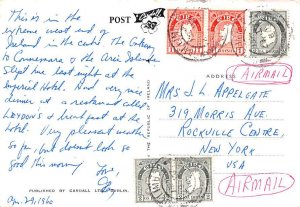 POST
This is in the
extreme west end of
Ireland in the
to Connemara & the Aran Islands
Slept here last night at the
Imperial Hotel. And very nice
dinner at a restaurant called
LYDON'S & breakfast at the
hotel. Very pleasant
so far but does not look so
good this morning
Love,
PUBLISHED BY CARDALL LTD., DUBLIN.
Apr. 29, 1960
THE REPUBLIC OF IRELAND
ADDRESS
AIRMAIL
MRS J L APPELGATE
319, MORRIS AVE.
ROCKVILLE CENTRE,
NEW YORK
USA
AIRMAIL